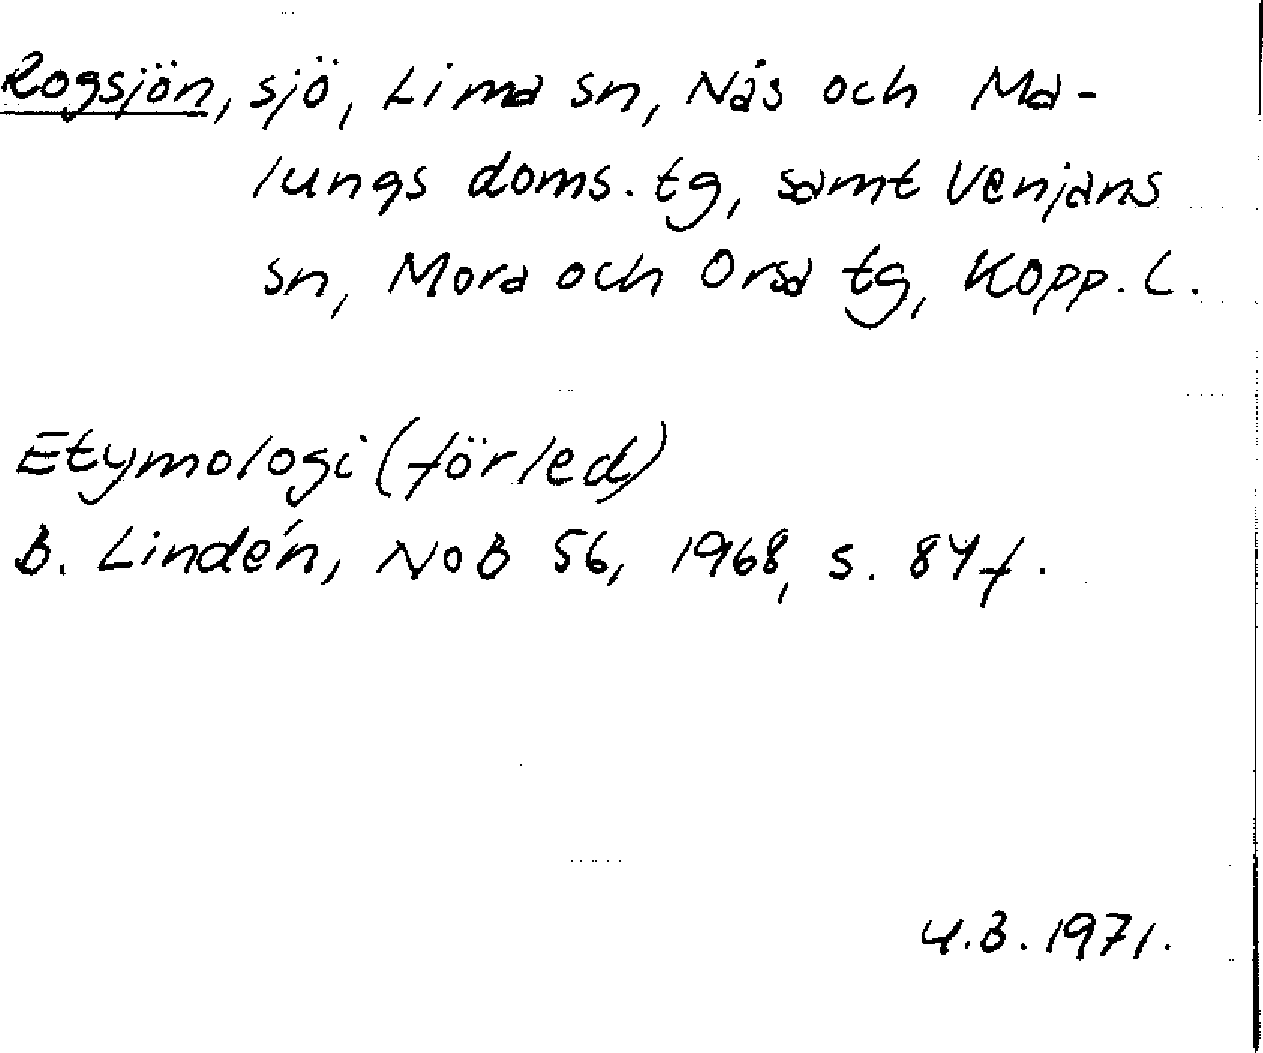 Rogsjön, sjö, Lima sn, Nås och Ma-
lungs doms. tg, samt Venjans
sn, Mora och Orsa tg, Kopp. L.
Etymologi (förled)
B. Lindén, NoB 56, 1968, s. 84f.
U.B. 1971.